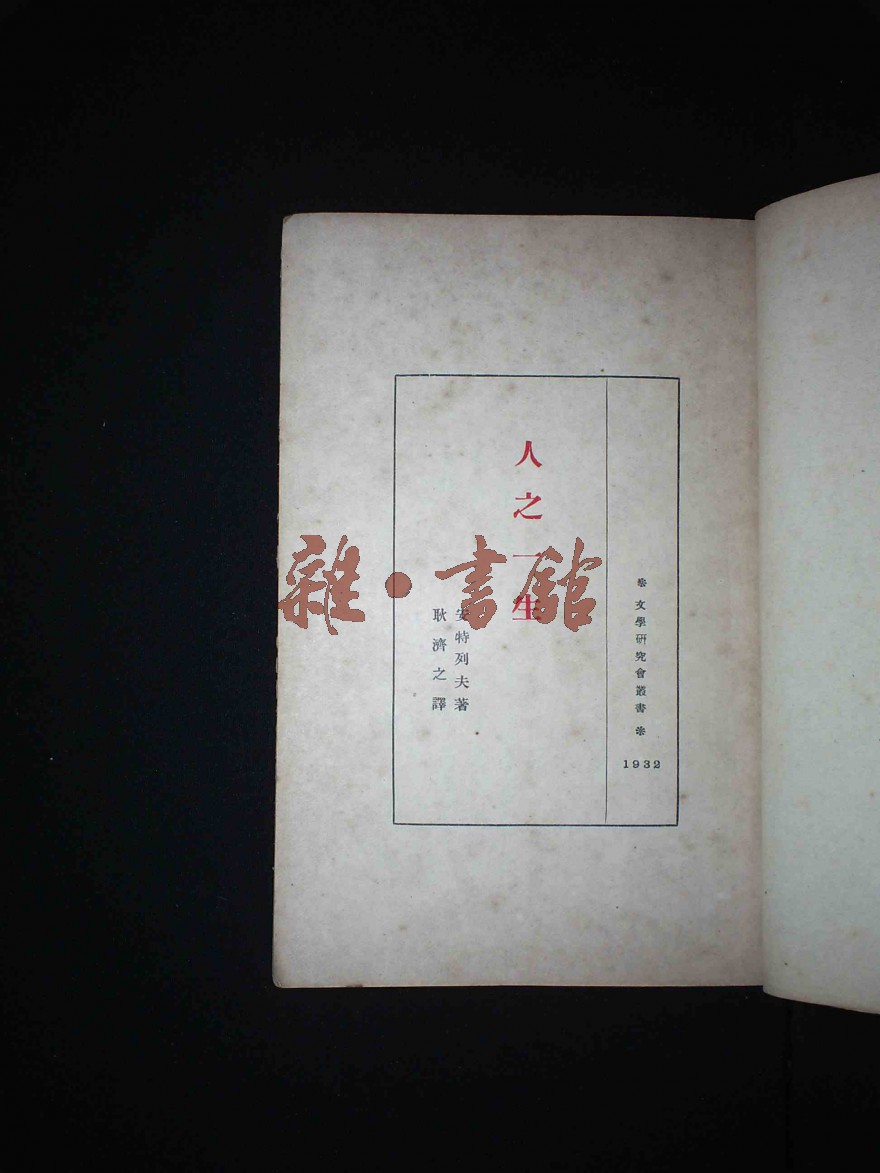 文學研究會叢書
1932
人之一生
安特列夫著
耿濟之譯
雜·書館